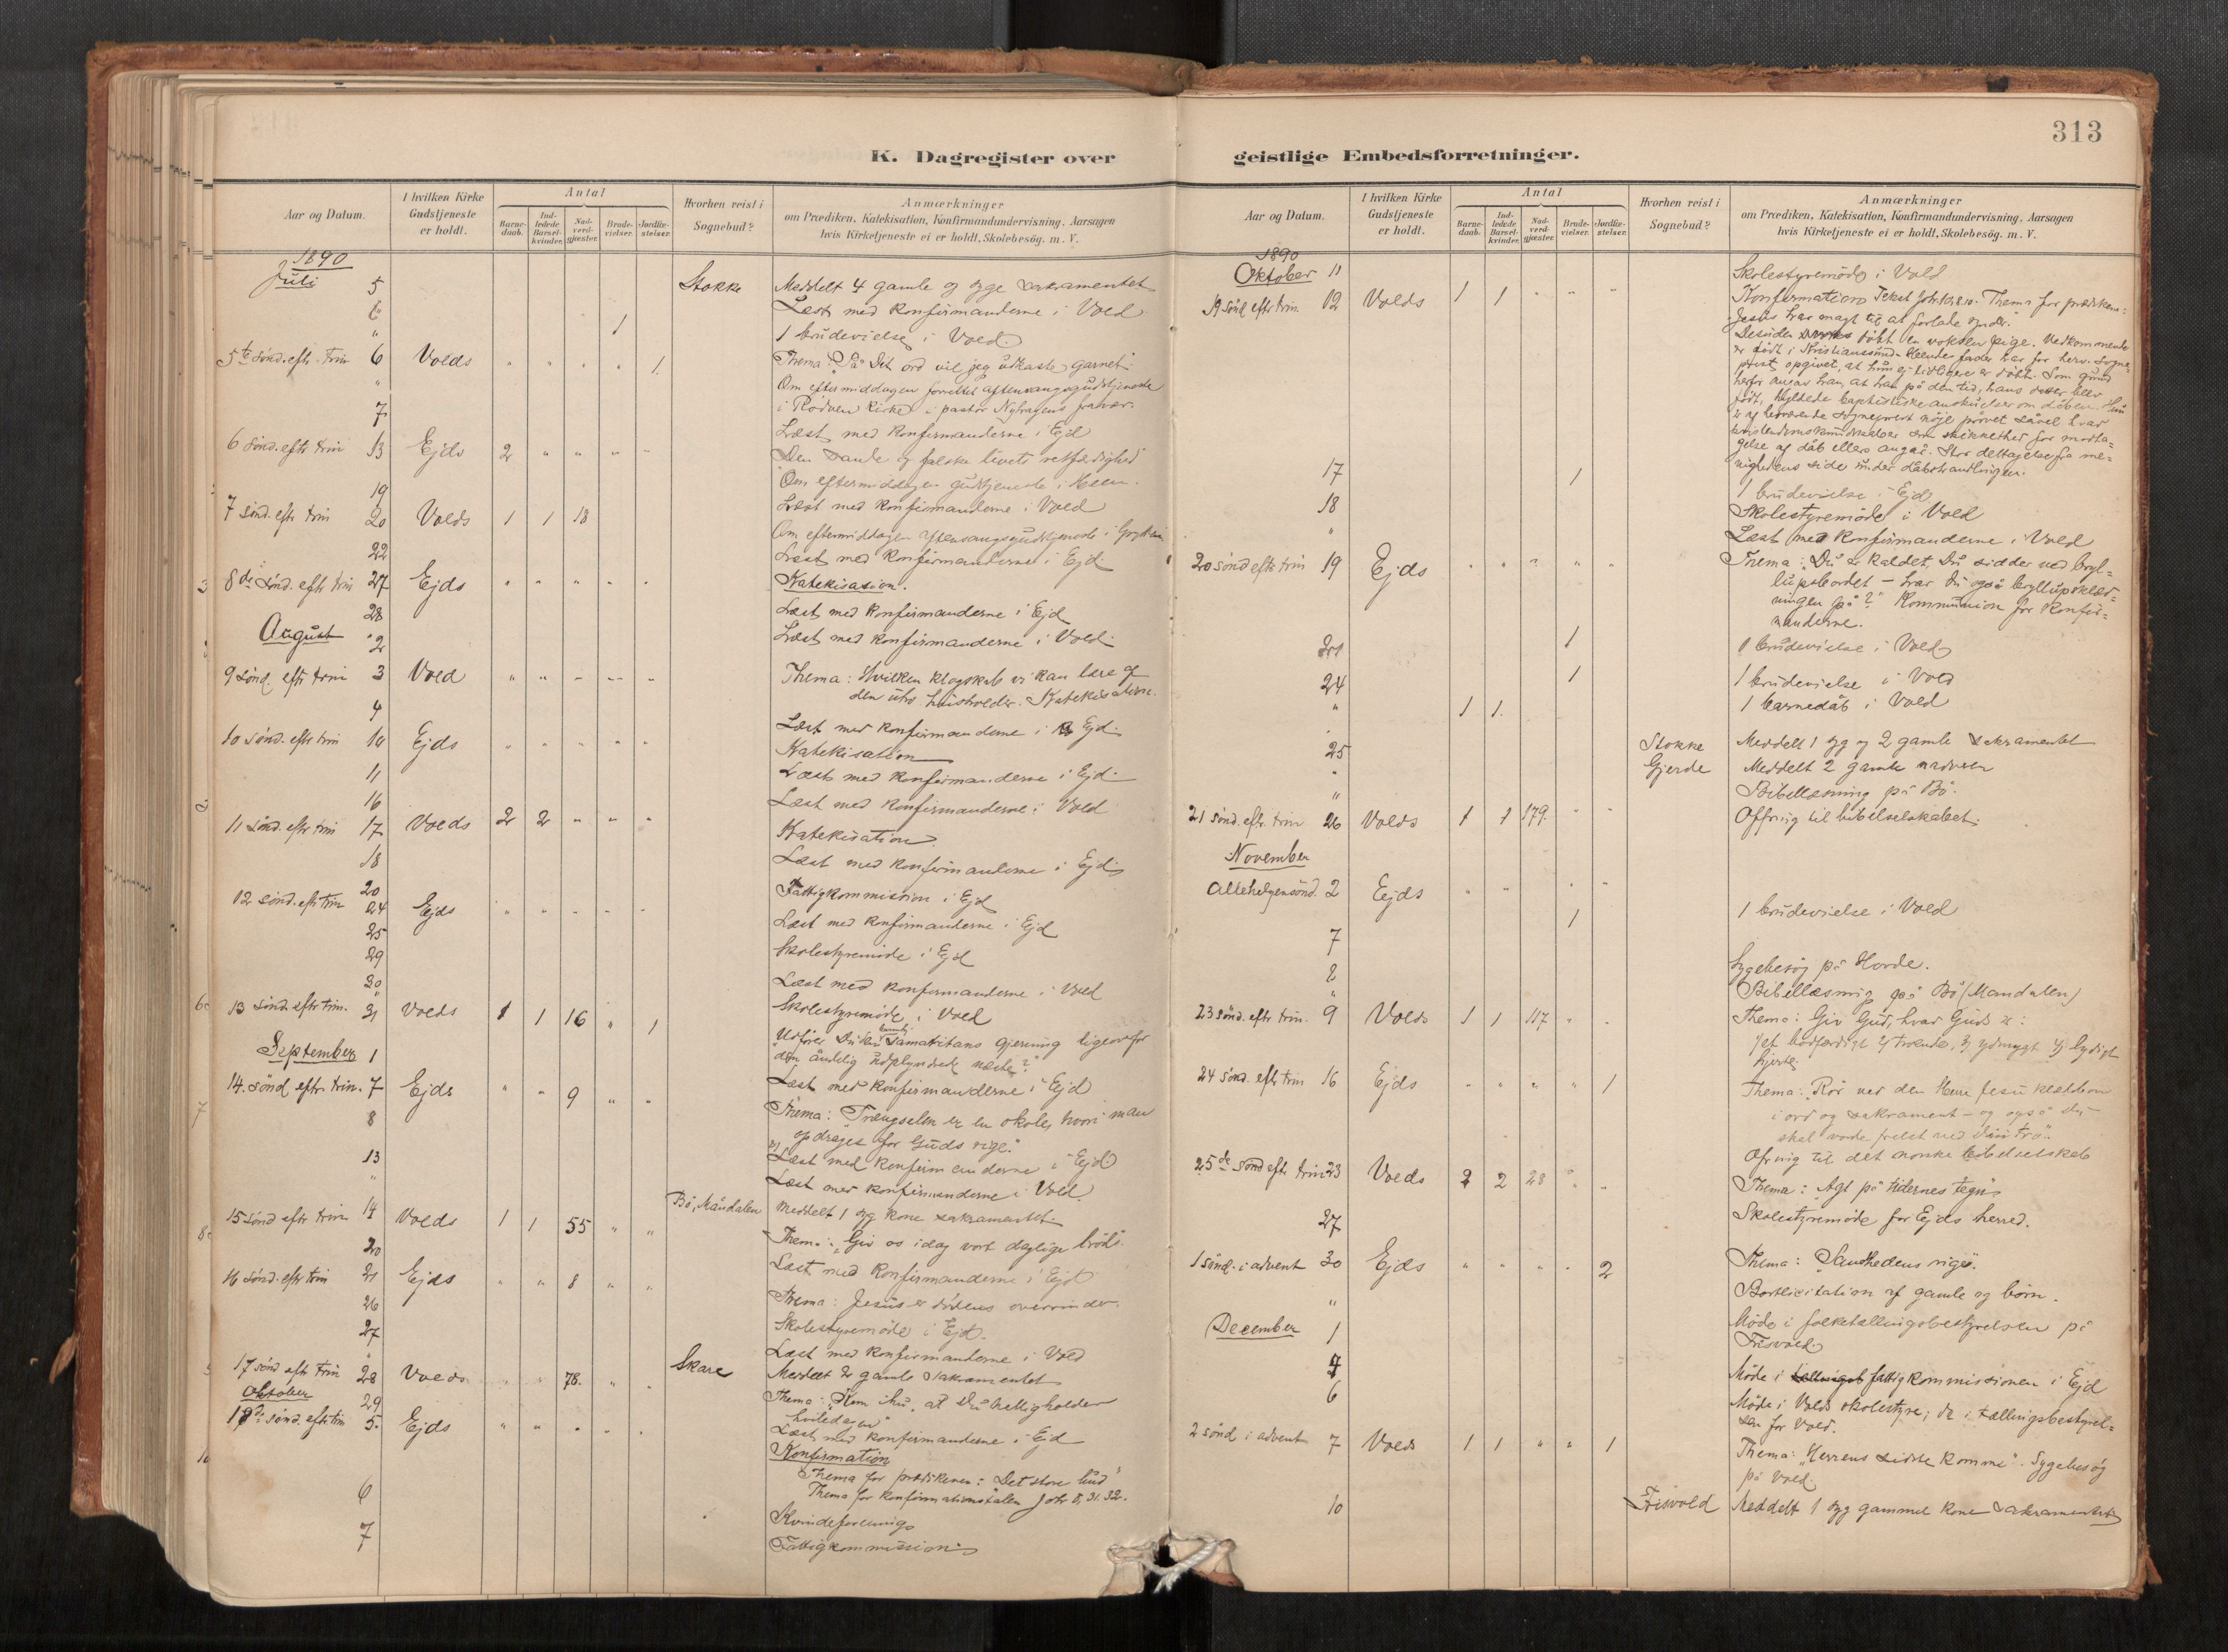 313
K. Dagregister over
geistlige Embedsforretninger.
Aar og Datum.
I hvilken Kirke Gudstjeneste er holdt.
Antal
Barne-daab.
Ind-ledede Barsel-kvinder.
Nad-verd-gjæster.
Brude-vielser.
Jordfæ-stelser.
Hvorhen reist i Sognebud?
Anmærkninger
om Prædiken, Katekisation, Konfirmandundervisning, Aarsagen
hvis Kirketjeneste ei er holdt, Skolebesøg. m. V.
1890
Juli 5 Stokke Meddelt 4 gamle og syge sakramentet
6 Læst med konfirmanderne i Vold
" 1 1 brudevielse i Vold.
5te sønd. eftr. trin 6 Volds " " " " 1. Thema: På Dit ord vil jeg udkaste garnet.
" Om eftermiddagen forrettet aftensangsgudstjeneste
i Rødven kirke i pastor
7 Læst med konfirmanderne i Ejd
6 sønd. eftr trin 13 Ejds 2 " " " " Den sande og falske livets retfærdighed
Om eftermiddagen gudstjeneste i Heen.
19 Læst med konfirmanderne i Vold
7 sønd. eftr trin 20 Volds 1 1 18
Om eftermiddagen aftensangsgudstjeneste i
22 Læst med konfirmanderne i Ejd
8de sønd. eftr trin 27 Ejds " " " " " Katekisation.
28 Læst med konfirmanderne i Ejd
August 2 Læst med konfirmanderne i Vold
9 sønd. eftr trin 3 Vold " " " " " Thema: Hvilken klogskab vi kan lære af
den utro husholder. Katekisation.
4 Læst med konfirmanderne i Ejd.
10 sønd. eftr trin 10 Ejds " " " " " Katekisation
11 Læst med konfirmanderne i Ejd
16 Læst med konfirmanderne i Vold
11 sønd. eftr trin 17 Volds 2 2 " " " Katekisation
18 Læst med konfirmanderne i Ejd
20 Fattigkommission i Ejd
12 sønd. eftr trin 24 Ejds " " " " "
25 Læst med konfirmanderne i Ejd
29 Skolestyremøde i Ejd
30 Læst med konfirmanderne i Vold
" Skolestyremøde i Vold
13 sønd. eftr trin. 31 Volds 1 1 16 " 1 Udfører Du den barmh. Samaritans gjerning ligeoverfor
den åndelig udplyndrede næste?
September 1 Læst med konfirmanderne i Ejd
14. sønd eftr trin. 7 Ejds " " 9 " " Thema: Trængselen er en skole, hvori man
opdrages for Guds rige.
8 Læst med konfirmanderne i Ejd
13 Læst med konfirmanderne i Vold.
" Bø, Måndalen Meddelt 1 syg kone sakramentet
15 sønd eftr trin 14 Volds 1 1 55 " " Thema: "Giv os idag vort daglige brød".
20 Læst med konfirmanderne i Ejd
16 sønd. eftr trin 21 Ejds " " 8 " " Thema: Jesus er dødens overvinder.
26 Skolestyremøde i Ejd.
27 Læst med konfirmanderne i Vold
" Skare Meddelt 2 gamle sakramentet
17 sønd eftr trin 28 Volds " " 78. " " Thema: "Kom ihu, at Du helligholder
hviledagen"
29 Læst med konfirmanderne i Ejd
Oktober
18de sønd. eftr trin 5. Ejds " " " " " Konfirmation
Thema for prædikenen: Det store bud
Thema for konfirmationstalen Joh 8, 31. 32.
6 Kvindeforenings
7 Fattigkommission
1890
Oktober 11 Skolestyremøde i Vold
19 sønd eftr trin. 12 Volds 1 1 " " " Konfirmation Tekst Joh. 10, 8.10. Thema for prædiken:
"Jesus har magt til at forlade synder."
Desuden døbt en voksen pige. Vedkommende
er født i Kristianssund. Hendes fader har for herv. sogne-
prest opgivet, at hun ej tidligere er døbt. Som grund
herfor angav han, at han på den tid, hans datter blev
født, hyldede baptistiske anskuelser om dåben. Hun
er af herværende sogneprest nøje prøvet såvel hvad
kristendomskundskaber som skikkethed for modta-
gelse af dåb ellers angår. Stor deltagelse fra me-
nighedens side under dåbshandlingen.
17 1 1 brudevielse i Ejd
18 Skolestyremøde i Vold
" Læst med konfirmanderne i Vold
20 sønd eftr trin 19 Ejds " " " " " Thema: "Du er kaldet, Du sidder ved bryl-
lupsbordet – har Du også bryllupsklæd-
ningen på?" Kommunion for konfir-
manderne.
21 1 1 brudevielse i Vold
24 1 1 brudevielse i Vold
" 1 1. 1 barnedåb i Vold
" Stokke Meddelt 1 syg og 2 gamle sakramentet
25 Gjerde Meddelt 2 gamle nadveren
" Bibellæsning på Bø.
21 sønd. eftr. trin 26 Volds 1 1 179. " " Offring til bibelselskabet.
November
Allehelgensønd. 2 Ejds " " " "
7 1 1 brudevielse i Vold
8 Sygebesøg på Horde.
" Bibellæsning på Bø (Mandalen)
23 sønd. eftr trin. 9 Volds 1 1 117 " " Thema: Giv Gud, hvad Guds er:
et bodfærdigt og troende, og ydmygt og lydigt
hjerte
24 sønd. eftr trin 16 Ejds " " " " 1 Thema: "Rør ved den Herre Jesu klædebon
i ord og sakrament – og også du
skal vorde frelst ved din tro".
Ofring til det norske bibelselskab
25de sønd eftr trin 23 Volds 2 2 28 " " Thema: Agt på tidernes tegn
27 Skolestyremøde for Ejds herred.
1 sønd. i advent 30 Ejds " " " " 2 Thema: "Sandhedens rige".
" Bortlicitation af gamle og børn.
December 1 Møde i folketællingsbestyrelsen på
Frisvold.
4 Møde i fattigkommissionen i Ejd
6 Møde i Volds skolestyre; do i tællingsbestyrel-
sen for Vold.
2 sønd i advent 7 Volds 1 1 " " 1 Thema: "Herrens sidste komme". Sygebesøg
på Vold.
10 Frisvold Meddelt 1 syg gammel kone sakramentet